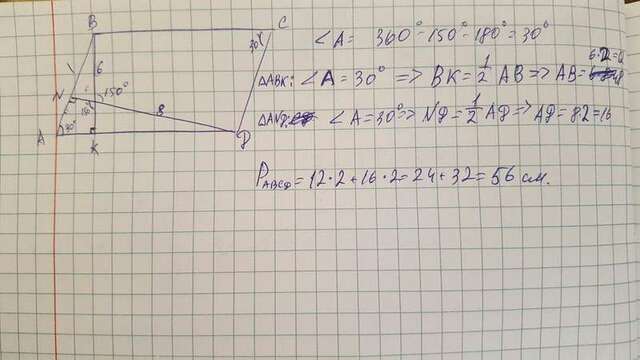 B C
30°
6
N 150°
8
A 30° K Д
∠A = 360° - 150° - 180° = 30°
6·2=12
ΔABK: ∠A = 30° => BK = 1/2 AB => AB =
ΔANД: ∠A = 30° => NД = 1/2 AД => AД = 8·2 = 16
P ABCД = 12·2 + 16·2 = 24 + 32 = 56 см.